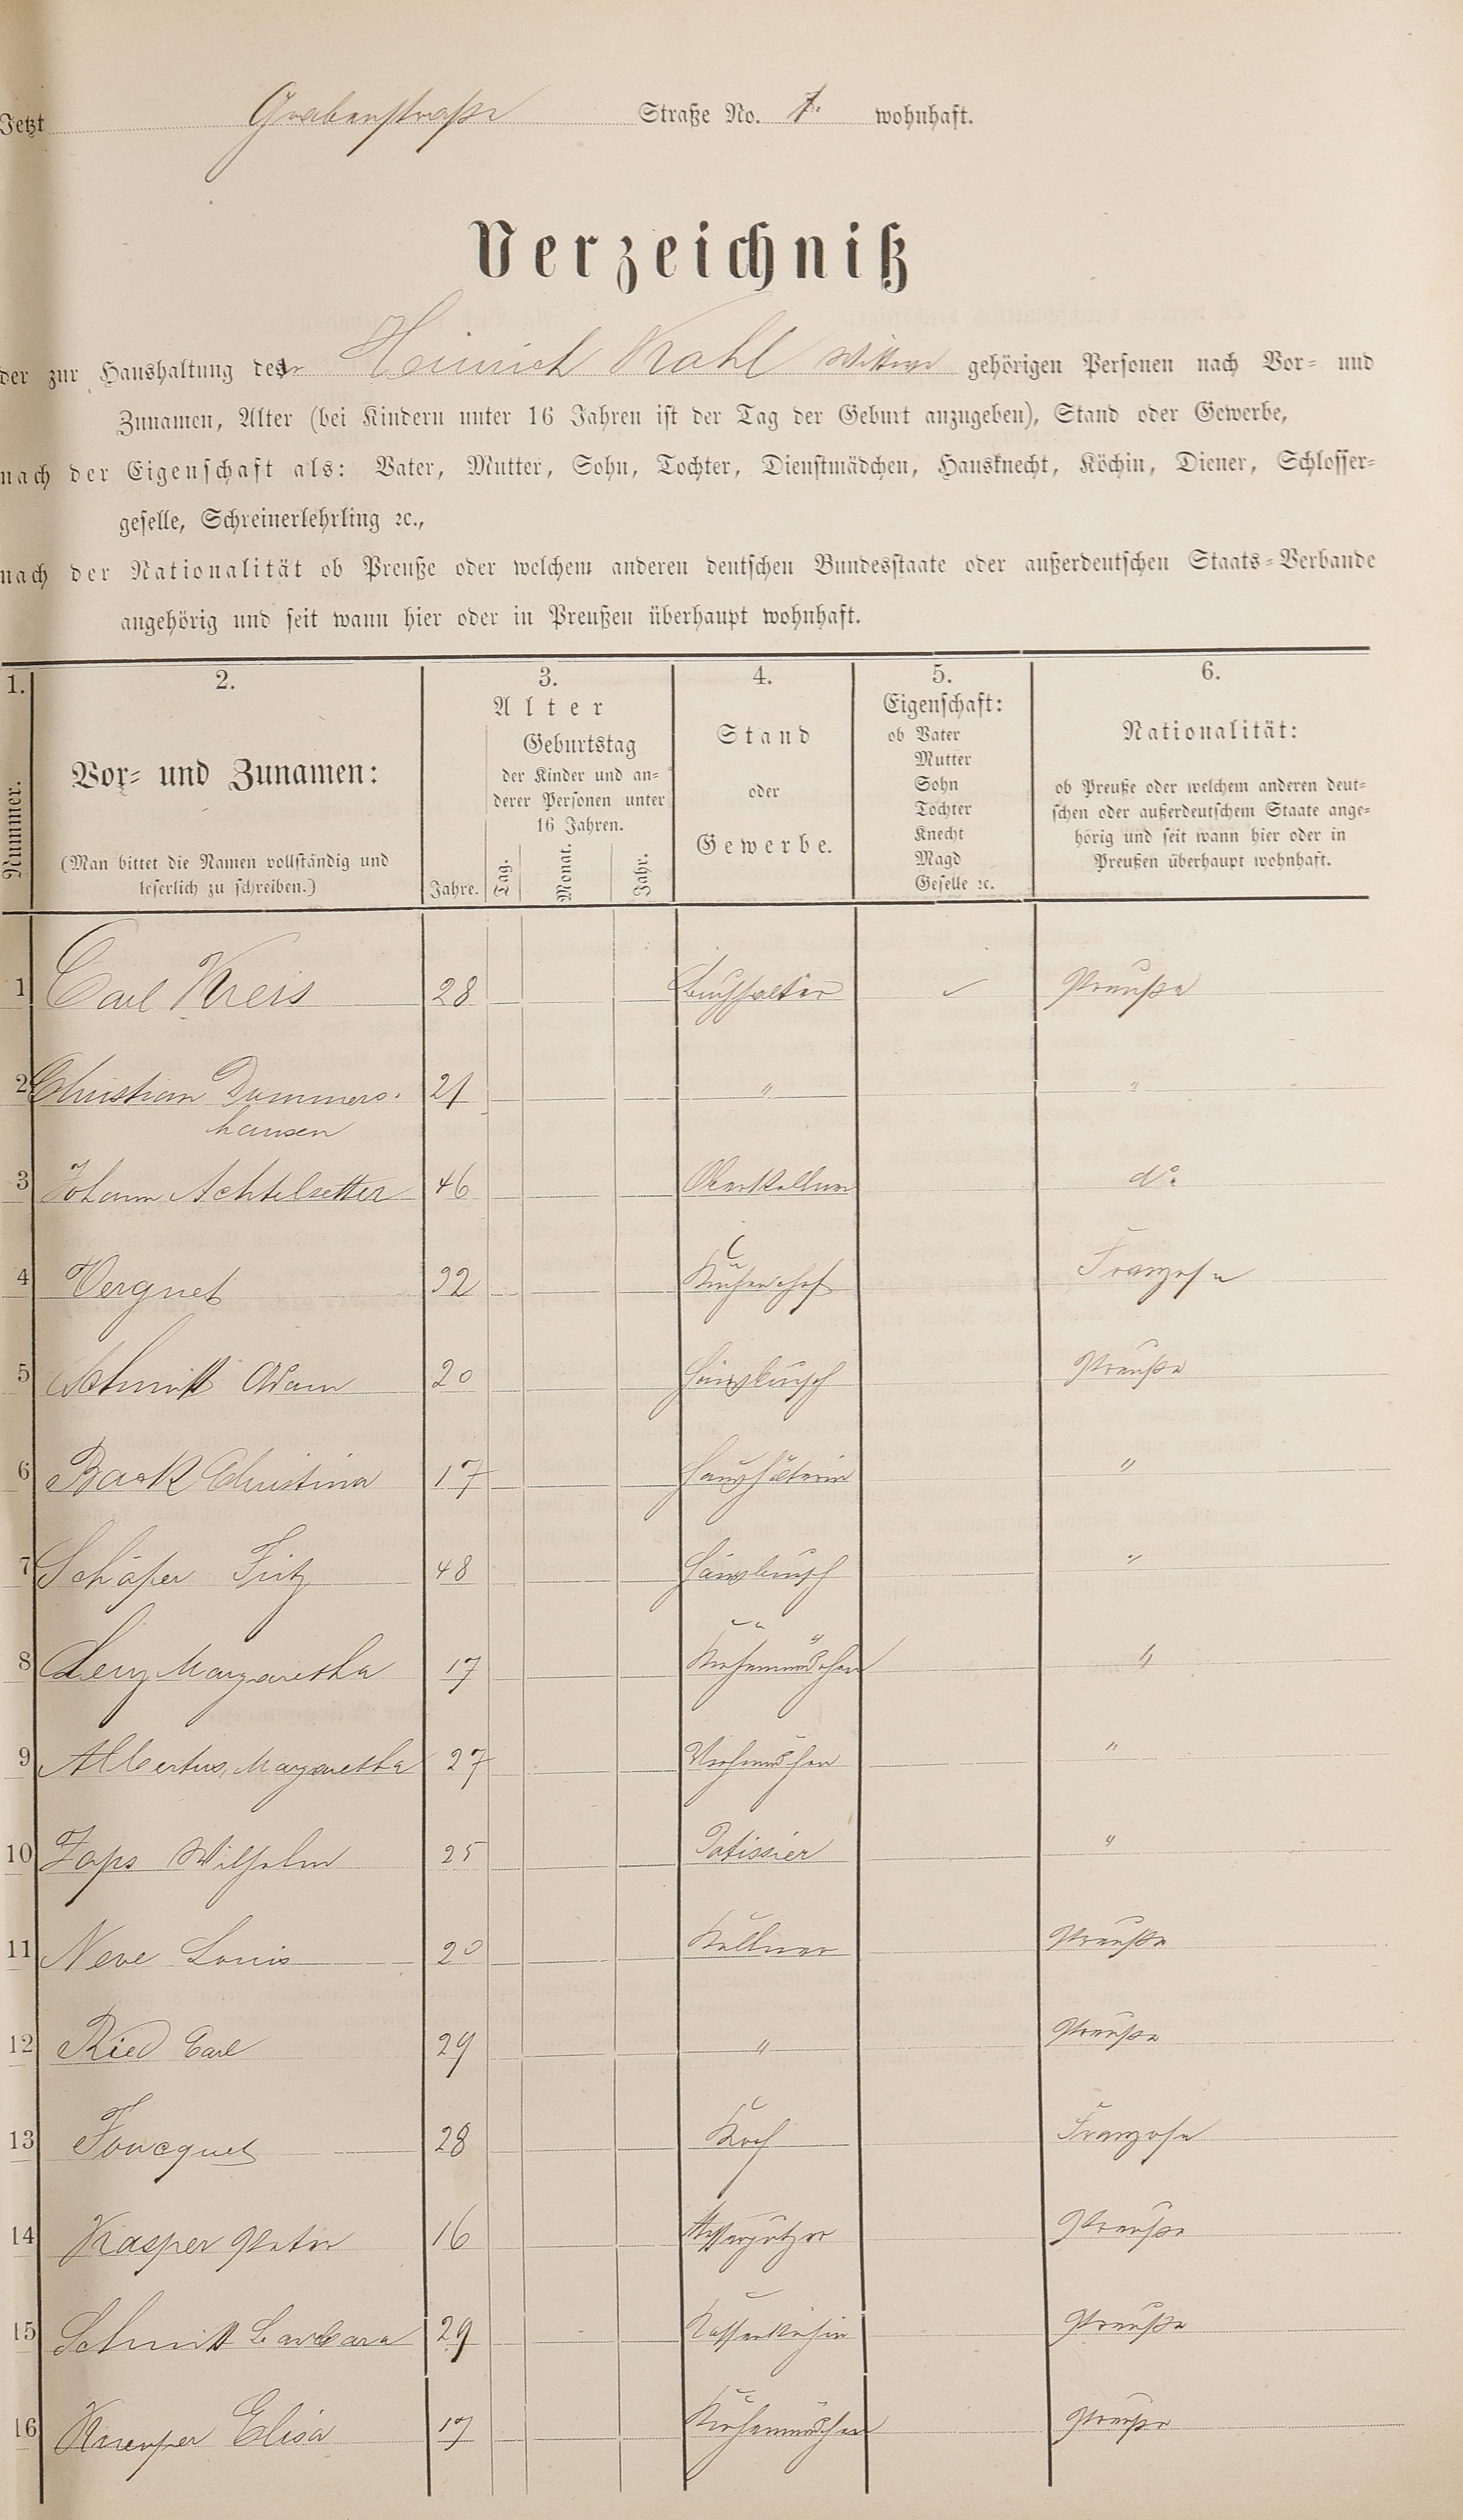 Jetzt Grabenstraße Straße No. 7. wohnhaft.
Verzeichniß
der zur Haushaltung der Heinrich Kahl Wittwe gehörigen Personen nach Vor- und
Zunamen, Alter (bei Kindern unter 16 Jahren ist der Tag der Geburt anzugeben), Stand oder Gewerbe,
nach der Eigenschaft als: Vater, Mutter, Sohn, Tochter, Dienstmädchen, Hausknecht, Köchin, Diener, Schlosser-
geselle, Schreinerlehrling ꝛc.,
nach der Nationalität ob Preuße oder welchem anderen deutschen Bundesstaate oder außerdeutschen Staats-Verbande
angehörig und seit wann hier oder in Preußen überhaupt wohnhaft.
1. 2. 3. 4. 5. 6.
Nummer.
Vor- und Zunamen:
(Man bittet die Namen vollständig und
leserlich zu schreiben.)
Alter
Geburtstag
der Kinder und an-
derer Personen unter
16 Jahren.
Jahre. Tag. Monat. Jahr.
Stand
oder
Gewerbe.
Eigenschaft:
ob Vater
Mutter
Sohn
Tochter
Knecht
Magd
Geselle ꝛc.
Nationalität:
ob Preuße oder welchem anderen deut-
schen oder außerdeutschem Staate ange-
hörig und seit wann hier oder in
Preußen überhaupt wohnhaft.
1 Carl Kreis 28 Buchhalter Preuße
2 Christian Dommers- 21 " "
hausen
3 Johann Achtelstetter 46 Oberkellner do.
4 Vergnet 32 Küchenchef Franzose
5 Schmitt Adam 20 Hausbursch Preuße
6 Back Christina 17 Haushälterin "
7 Schäfer Fritz 48 Hausbursch "
8 Lenz Margaretha 17 Küchenmädchen "
9 Albertus, Margaretha 27 "
10 Zaps Wilhelm 25 Patissier "
11 Neve Louis 20 Kellner Preuße
12 Ried Carl 29 " Preuße
13 Foucquet 28 Koch Franzose
14 Kasper Peter 16 Messerputzer Preuße
15 Schmitt Barbara 29 Kaffeeköchin Preuße
16 Elisa 17 Küchenmädchen Preuße